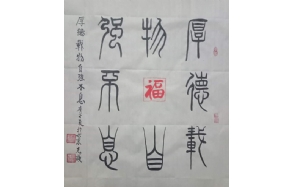 厚德載
物福自
强不息
厚德載物自强不息